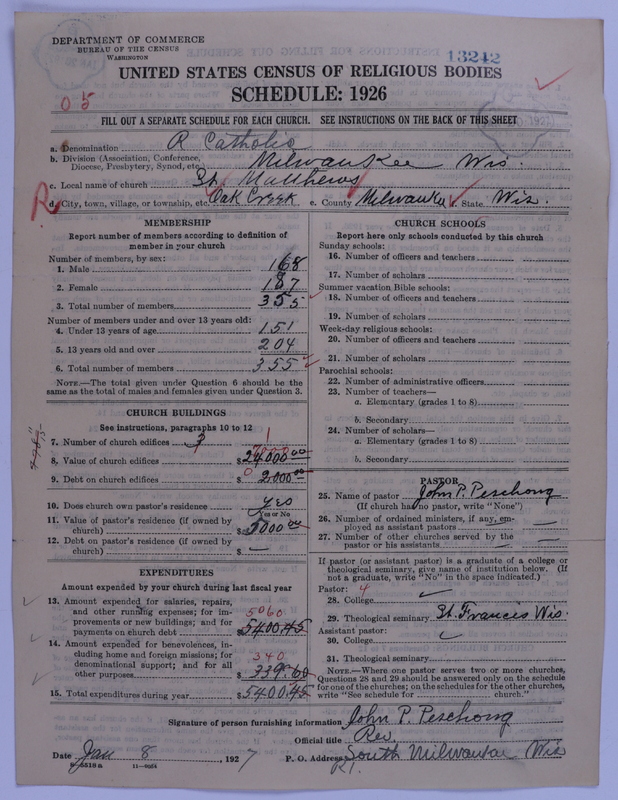 DEPARTMENT OF COMMERCE
BUREAU OF THE CENSUS
WASHINGTON
13242
UNITED STATES CENSUS OF RELIGIOUS BODIES
SCHEDULE: 1926
05
FILL OUT A SEPARATE SCHEDULE FOR EACH CHURCH. SEE INSTRUCTIONS ON THE BACK OF THIS SHEET
a. Denomination R Catholic
b. Division (Association, Conference, Diocese, Presbytery, Synod, etc.) Milwaukee Wis.
c. Local name of church St. Matthews
R
d. City, town, village, or township, etc. Oak Creek e. County Milwaukee f. State Wis.
MEMBERSHIP
Report number of members according to definition of
member in your church
Number of members, by sex:
1. Male 168
2. Female 187
3. Total number of members 355
Number of members under and over 13 years old:
4. Under 13 years of age 151
5. 13 years old and over 204
6. Total number of members 355
NOTE.—The total given under Question 6 should be
same as the total of males and females given under Question 3.
CHURCH BUILDINGS
See instructions, paragraphs 10 to 12
7. Number of church edifices 3 1
8. Value of church edifices $24000 00
9. Debt on church edifices $ 2000 00
10. Does church own pastor's residence yes
Yes or No
11. Value of pastor's residence (if owned by
church) $5000 00
12. Debt on pastor's residence (if owned by
church) $ —
EXPENDITURES
Amount expended by your church during last fiscal year
13. Amount expended for salaries, repairs,
and other running expense; for im-
provements or new buildings; and for 5060
payments on church debt $5400.45
14. Amount expended for benevolences, in-
cluding home and foreign missions; for
denominational support; and for all 340
other purposes $ 339.60
15. Total expenditures during year $5400.45
CHURCH SCHOOLS
Report here only schools conducted by this church
Sunday schools:
16. Number of officers and teachers
17. Number of scholars
Summer vacation Bible schools:
18. Number of officers and teachers
19. Number of scholars
Week-day religious schools:
20. Number of officers and teachers
21. Number of scholars
Parochial schools:
22. Number of administrative officers
23. Number of teachers—
a. Elementary (grades 1 to 8)
b. Secondary
24. Number of scholars—
a. Elementary (grades 1 to 8)
b. Secondary
PASTOR
25. Name of pastor John P. Peschong
(If church had no pastor, write "None")
26. Number of ordained ministers, if any, em-
ployed as assistant pastors —
27. Number of other churches served by the
pastor or his assistants —
If pastor (or assistant pastor) is a graduate of a college or
theological seminary, give name of institution below. (If
not a graduate, write "No" in the space indicated.)
Pastor: 4
28. College
29. Theological seminary St. Francis Wis.
Assistant pastor:
30. College
31. Theological seminary
NOTE.—Where one pastor serves two or more churches,
Questions 28 and 29 should be answered only on the schedule
for one of the churches; on the schedules for the other churches,
write "See schedule for church."
Signature of person furnishing information John P. Peschong
Official title Rev.
Date Jan 8, 1927 P. O. Address South Milwaukee Wis
R1.
8—5518 a 11—9968